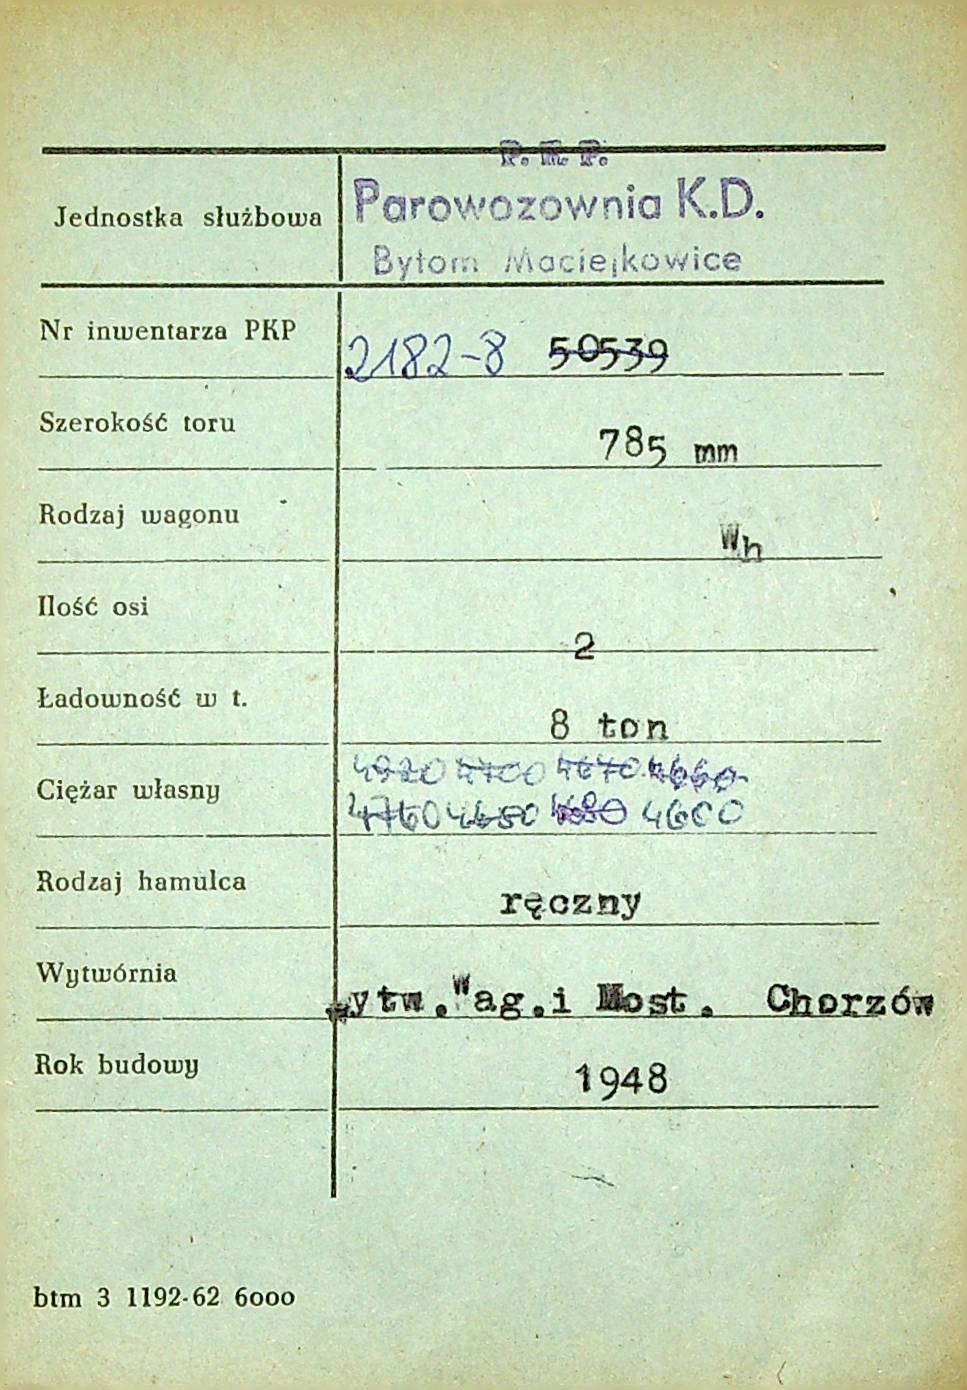 P. K. P.
Parowozownia K.D.
Jednostka służbowa
Bytom Maciejkowice
Nr inwentarza PKP 2182-8 50539
Szerokość toru 785 mm
Rodzaj wagonu Wh
Ilość osi 2
Ładowność w t. 8 ton
4920 4700 4670 4660
Ciężar własny
4760 4650 4680 4600
Rodzaj hamulca ręczny
Wytwórnia Wytw. Wag. i Most. Chorzów
Rok budowy 1948
btm 3 1192-62 6000